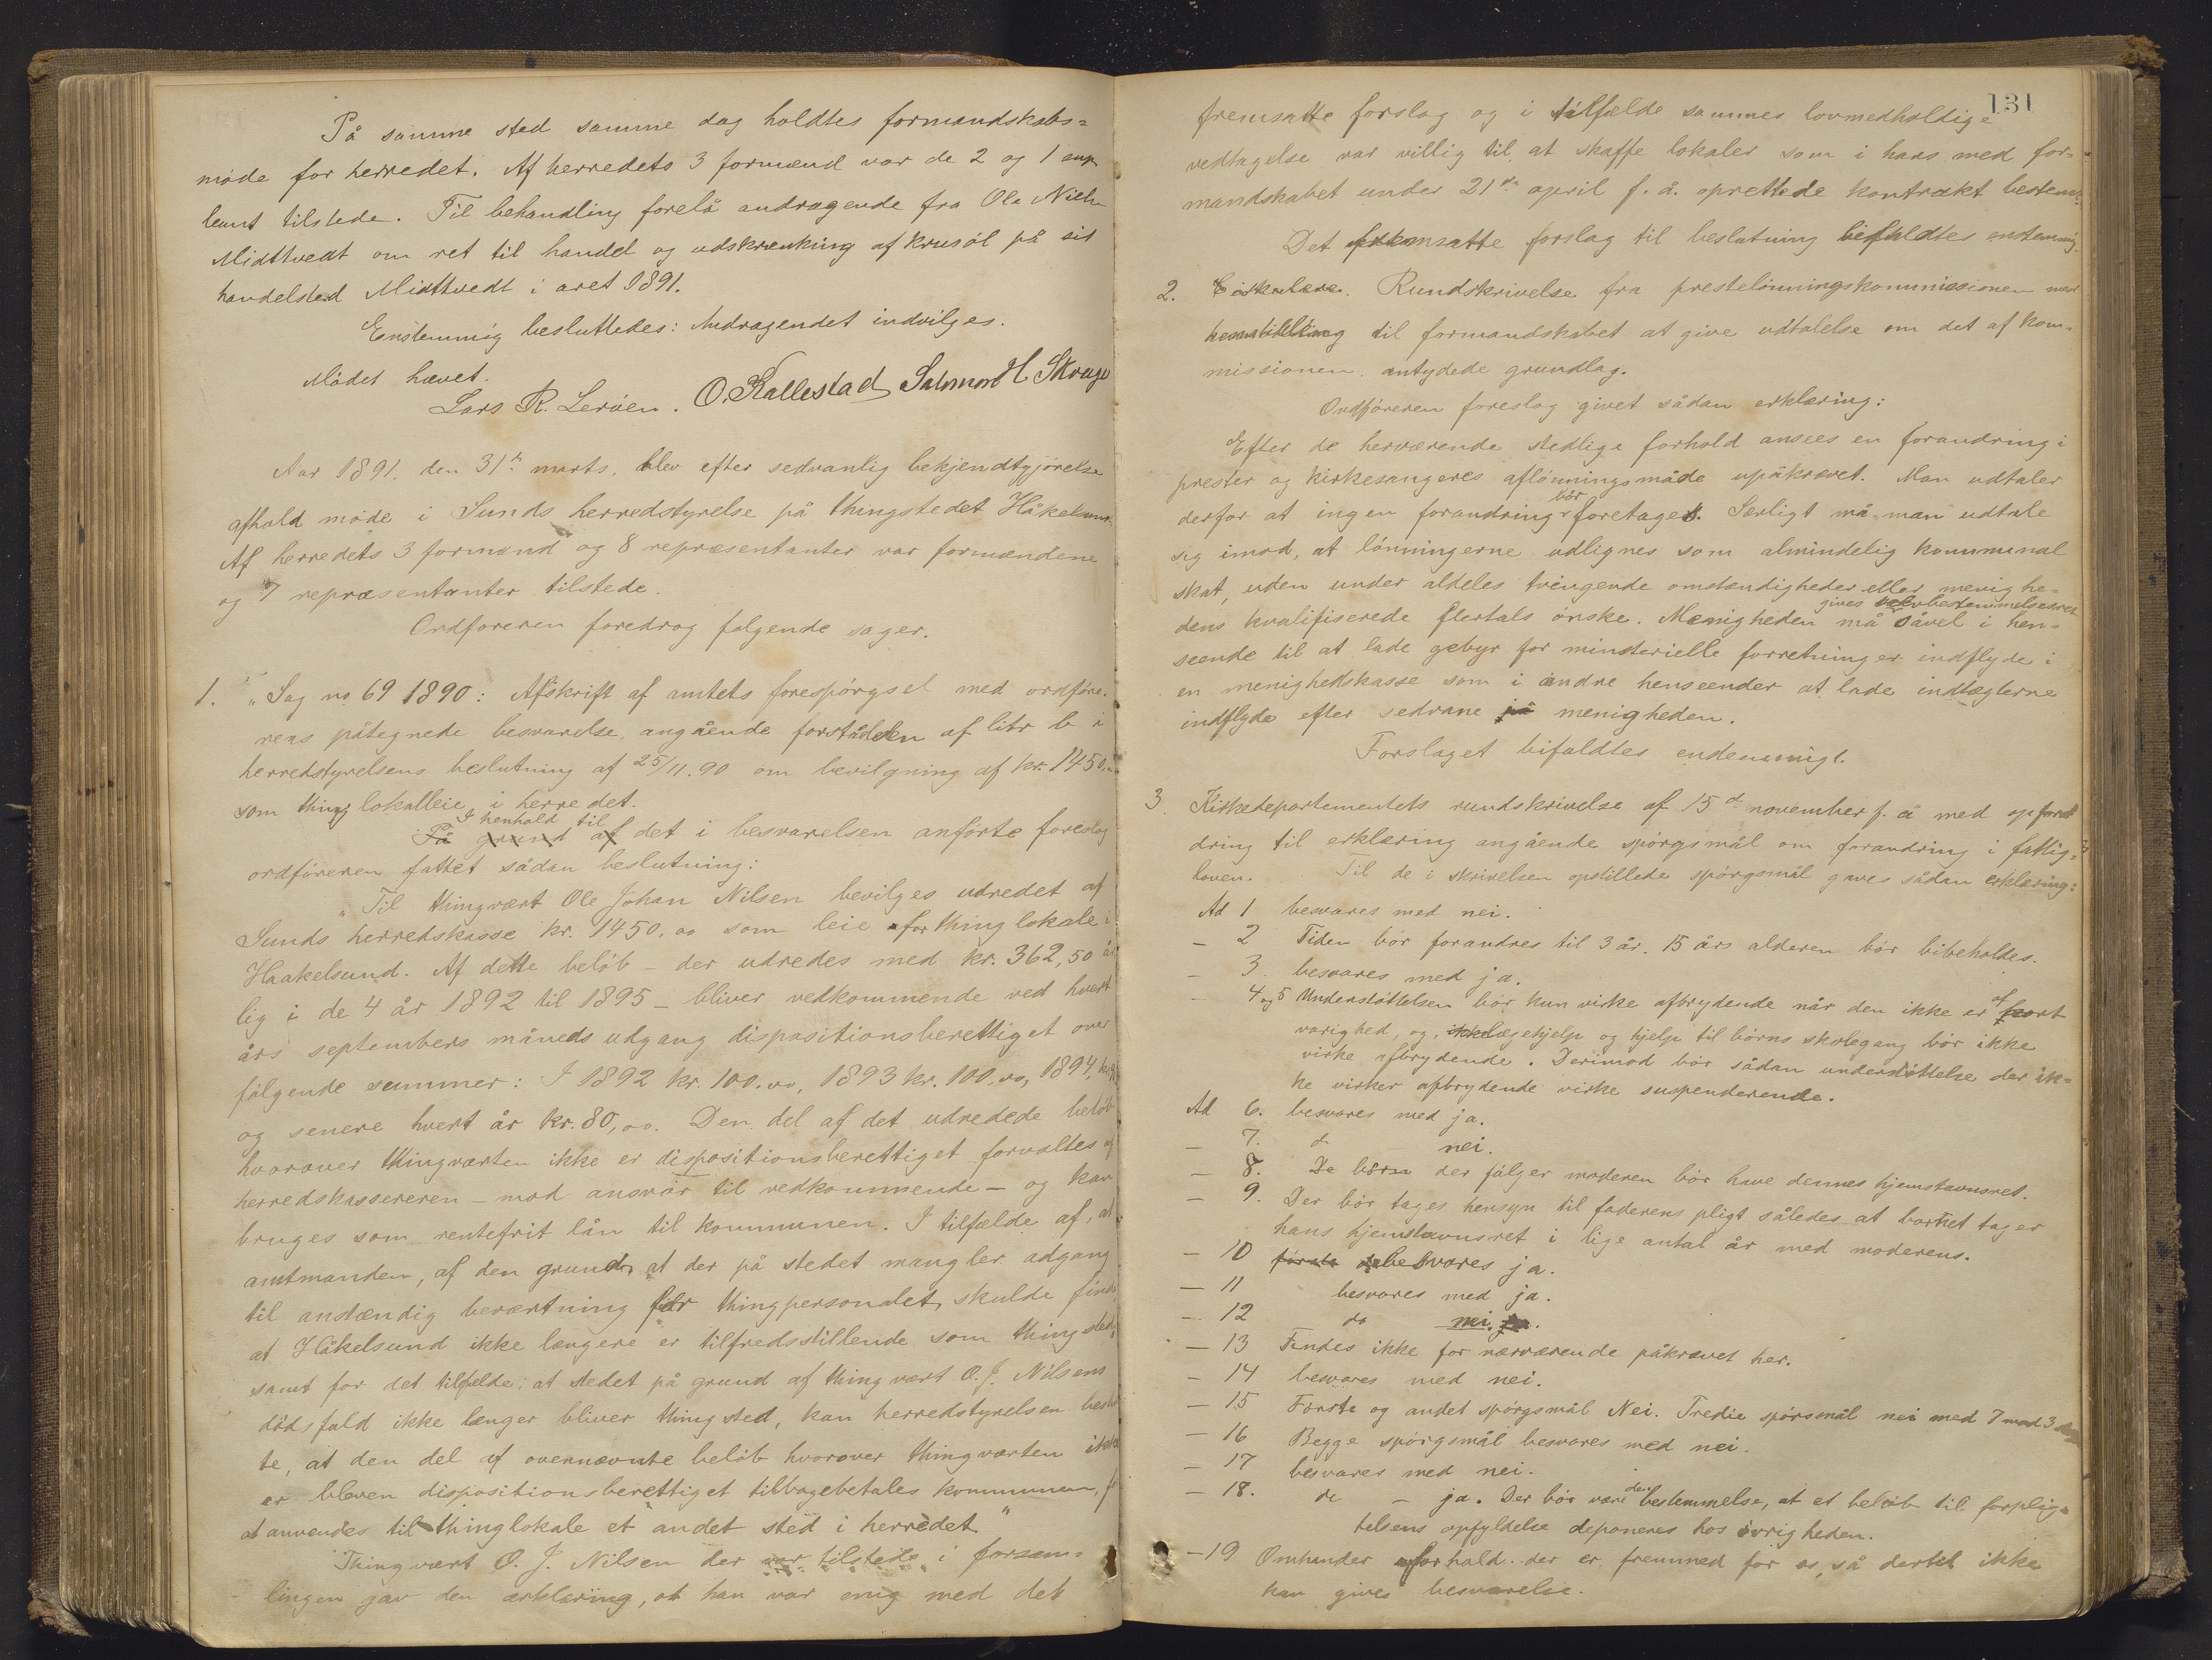 På samme sted samme dag holdtes formandskabs=
møde for herredet. Af herredets 3 formænd var de 2 og 1 sup=
leant tilstede. Til behandling forelå andragende fra Ole Niels.
Midttvedt om ret til handel og udskjænkning af krusøl på sit
handelsted Midttvedt i året 1891.
Enstemmig besluttedes: Andragendet indvilges.
Mødet hævet.
Lars R. Lerøen. O. Kallestad Salmon H Skoge
Aar 1891. den 31te marts. blev efter sedvanlig bekjendtgjørelse
afhold møde i Sunds herredstyrelse på thingstedet Håkelsund.
Af herredets 3 formænd og 8 repræsentanter var formændene
og 7 repræsentanter tilstede.
Ordføreren foredrog følgende sager.
1. "Sag no 69 1890: Afskrift af amtets forespørgsel med ordføre=
rens påtegnede besvarelse, angående forståelsen af litr b i
herredstyrelsens beslutning af 25/11.90 om bevilgning af kr. 1450,
som thinglokalleie i herredet.
I henhold til
På grund af det i besvarelsen anførte foreslog
ordføreren fattet sådan beslutning:
"Til thingvært Ole Johan Nilsen bevilges udredet af
Sunds herredskasse kr. 1450,00 som leie for thinglokale i
Haakelsund. Af dette beløb – der udredes med kr. 362,50 år
lig i de 4 år 1892 til 1895 – bliver vedkommende ved hvert
års septembers måneds udgang dispositionsberettiget over
følgende summer: I 1892 kr. 100,00, 1893 kr. 100,00, 1894,
og senere hvert år kr. 80,00. Den del af det udredede beløb
hvorover thingværten ikke er dispositionsberettiget forvaltes af
herredskassereren – mod ansvar til vedkommende – og kan
bruges som rentefrit lån til kommunen. I tilfælde af, at
amtmanden, af den grund, at der på stedet mangler adgang
til anstændig beværtning for thingpersonalet, skulde finde
at Håkelsund ikke længere er tilfredsstillende som thingsted,
samt for det tilfælde, at stedet på grund af thingvært O. J. Nilsens
dødsfald ikke længer bliver thingsted, kan herredstyrelsen beslut
te, at den del af ovennævnte beløb hvorover thingværten ikke
er bleven dispositionsberettiget tilbagebetales kommunen, for
at anvendes til thinglokale et andet sted i herredet."
Thingvært O. J. Nilsen der var tilstede i forsam=
lingen gav den erklæring, at han var enig med det
131
fremsatte forslag og i tilfælde sammes lovmedholdige
vedtagelse var villig til at skaffe lokaler som i hans med for=
mandskabet under 21de april f. å. oprettede kontrakt bestemt.
Det fremsatte forslag til beslutning bifaldtes enstemmig.
2. Cirkulære. Rundskrivelse fra prestelønningskommissionen med
henstilling til formandskabet at give udtalelse om det af kom=
missionen antydede grundlag.
Ordføreren foreslog givet sådan erklæring:
Efter de herværende stedlige forhold ansees en forandring i
prester og kirkesangeres aflønningsmåde upåkrævet. Man udtaler
derfor at ingen forandring bør foretages. Særligt må man udtale
sig imod, at lønningerne udlignes som almindelig kommunal
skat, uden under aldeles tvingende omstændigheder eller menighe=
gives selvbestemmelsesret
dens kvalifiserede flertals ønske. Menigheden må såvel i hen=
seende til at lade gebyr for ministerielle forretninger indflyde i
en menighedskasse som i andre henseender at lade indtægterne
indflyde efter sedvane på menigheden.
Forslaget bifaldtes endenemigt.
3. Kirkedepartementets rundskrivelse af 15de november f. å med opford
dring til erklæring angående spørgsmål om forandring i fattig=
loven. Til de i skrivelsen opstillede spørgsmål gaves sådan erklæring:
Ad 1 besvares med nei.
– 2 Tiden bør forandres til 3 år. 15 års alderen bør bibeholdes.
– 3. besvares med ja.
– 4 og 5 Understøttelsen bør kun virke afbrydende når den ikke er af kort
varighed, og, ikke lægehjelp og hjelp til børns skolegang bør ikke
virke afbrydende. Derimod bør sådan understøttelse der ik=
ke virker afbrydende virke suspenderende.
Ad 6. besvares med ja.
– 7. do nei.
– 8. De børn der følger moderen bør have dennes hjemstavnsret.
– 9. Der bør tages hensyn til faderens pligt således at barnet tager
hans hjemstavnsret i lige antal år med moderens.
– 10 første besvares ja.
– 11 besvares med ja.
– 12 do nei. ja.
– 13 Findes ikke for nærværende påkrævet her.
– 14 besvares med nei.
– 15 Første og andet spørgsmål Nei. Tredie spørsmål nei med 7 mod 3
– 16 Begge spørgsmål besvares med nei.
– 17 besvares med nei.
– 18. do – ja. Der bør være den bestemmelse, at et beløb til forplig=
telsens opfyldelse deponeres hos øvrigheden.
– 19 Omhander forhold der er fremmed for os, så dertil ikke
kan gives besvarelse.